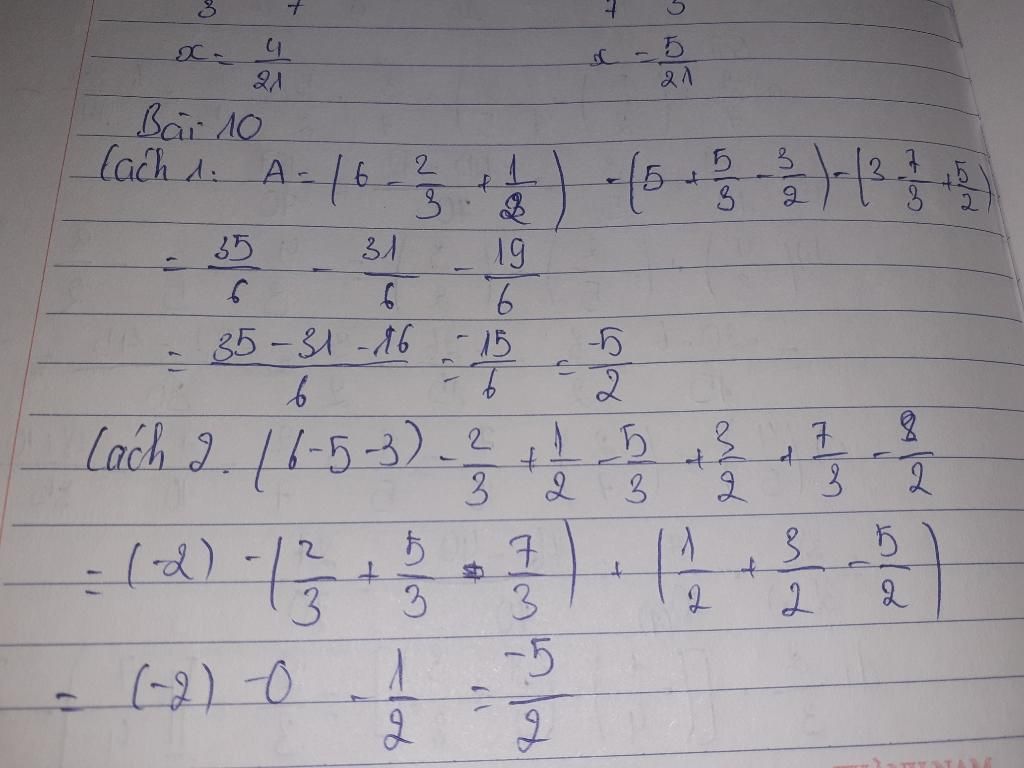 3 7 7 3
x = 4/21 x = 5/21
Bài 10
Cách 1: A = (6 - 2/3 + 1/2) - (5 + 5/3 - 3/2) - (3 - 7/3 + 5/2)
= 35/6 - 31/6 - 19/6
= (35 - 31 - 16)/6 = -15/6 = -5/2
Cách 2. (6 - 5 - 3) - 2/3 + 1/2 - 5/3 + 3/2 + 7/3 - /2
= (-2) - (2/3 + 5/3 - 7/3) + (1/2 + 3/2 - 5/2)
= (-2) - 0 - 1/2 = -5/2